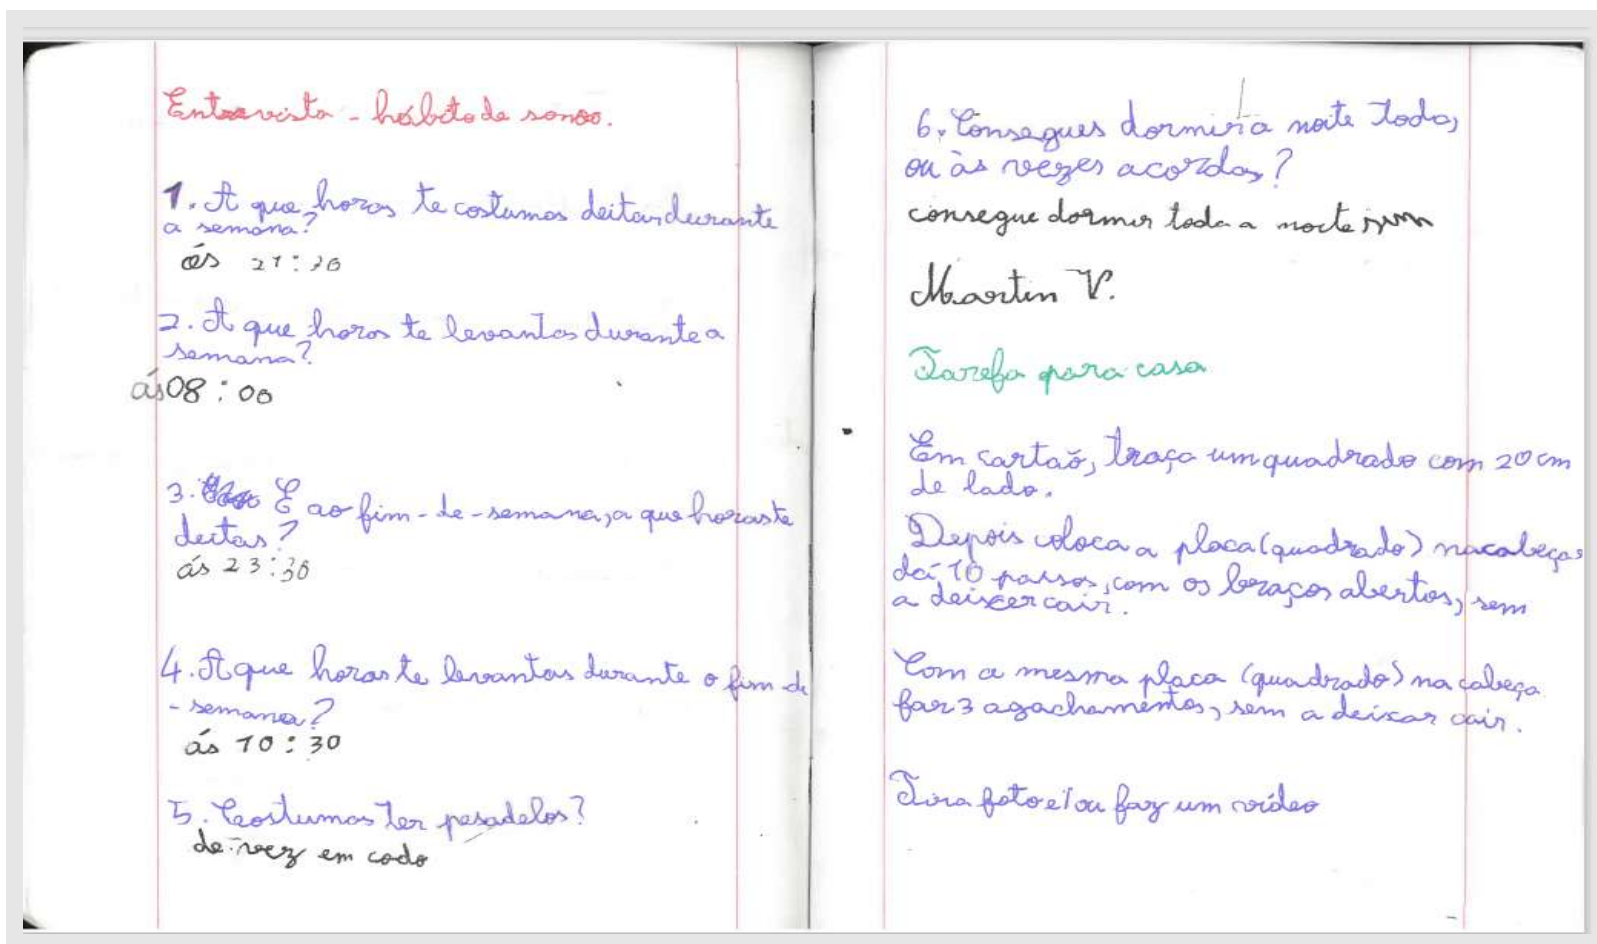 Entrevista - hábito de sono.
1. A que horas te costumas deitar, durante
a semana?
ás 21:30
2. A que horas te levantas durante a
semana?
ás 08:00
3. E ao fim-de-semana, a que horas te
deitas?
ás 23:30
4. A que horas te levantas durante o fim-de
-semana?
ás 10:30
5. Costumas ter pesadelos?
de vez em codo
6. Consegues dormir a noite toda,
ou às vezes acordas?
consegue dormir toda a noite
Martin V.
Tarefa para casa
Em cartaõ, traça um quadrado com 20 cm
de lado.
Depois coloca a placa (quadrado) na cabeça e
dá 10 passos, com os braços abertos, sem
a deixer cair.
Com a mesma placa (quadrado) na cabeça
faz 3 agachamentos, sem a deixar cair.
Tira foto e/ou faz um vídeo